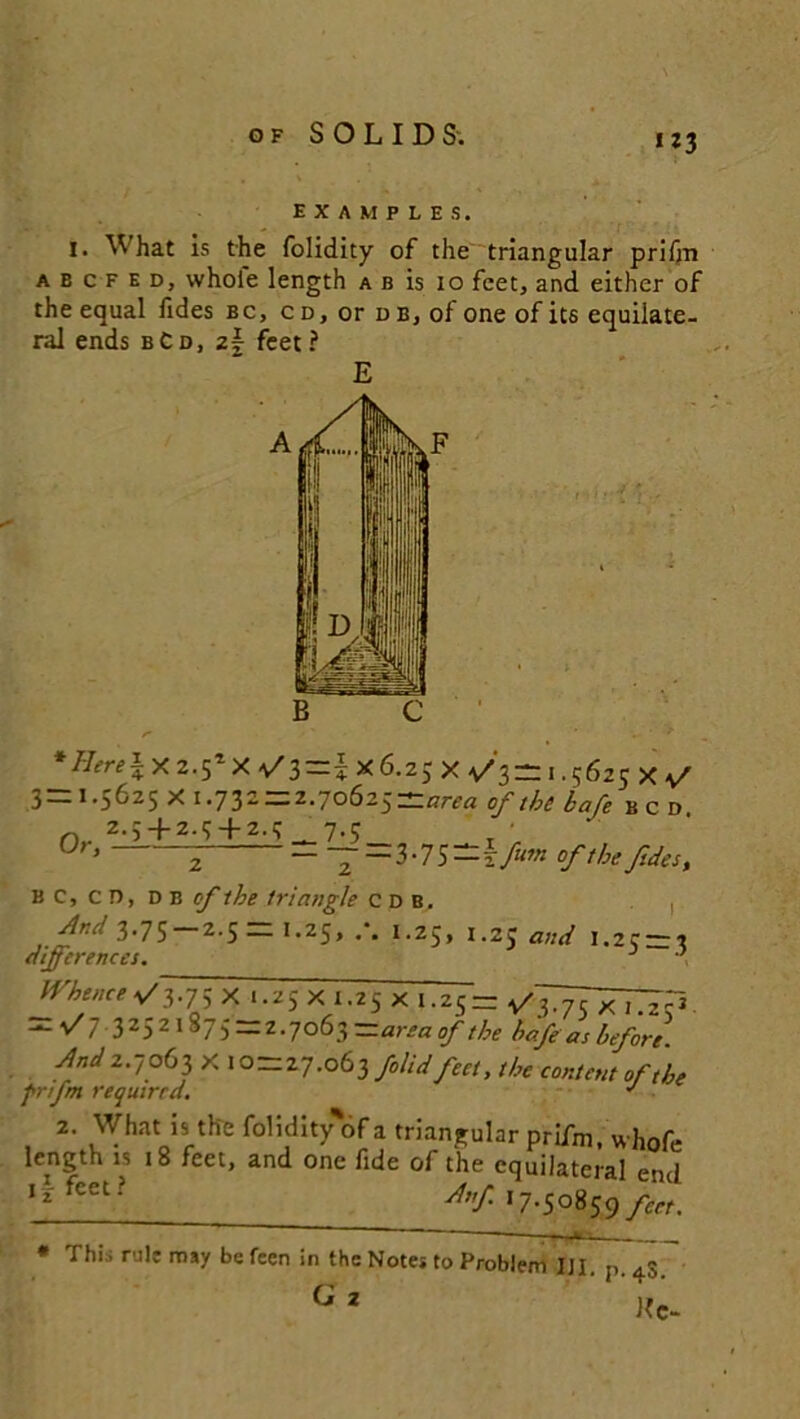 OF SOLIDS. 123
EXAMPLES.
1. What is the ſolidity of the triangular priſm
A B C F E D, whoſe length A B is 10 feet, and either of
the equal ſides BC, CD, or DB, of one of its equilate-
ral ends BCD, 2½ feet?
E
A F
D
B C
* Here ¼ × 2.5² × √3 = ¼ × 6.25 × √3 = 1.5625 × √
3 = 1.5625 × 1.732 = 2.70625 = area of the baſe B C D.
Or, (2.5 + 2.5 + 2.5)/2 = 7.5/2 = 3.75 = ½ ſum of the ſides,
B C, C D, D B of the triangle C D B.
And 3.75 — 2.5 = 1.25, ∴ 1.25, 1.25 and 1.25 = 3
differences.
Whence √3.75 × 1.25 × 1.25 × 1.25 = √3.75 × 1.25³
= √7.32521875 = 2.7063 = area of the baſe as before.
And 2.7063 × 10 = 27.063 ſolid feet, the content of the
priſm required.
2. What is the ſolidity of a triangular priſm, whoſe
length is 18 feet, and one ſide of the equilateral end
1½ feet? Anſ. 17.50859 feet.
* This rule may be ſeen in the Notes to Problem III. p. 48.
G 2 Re-